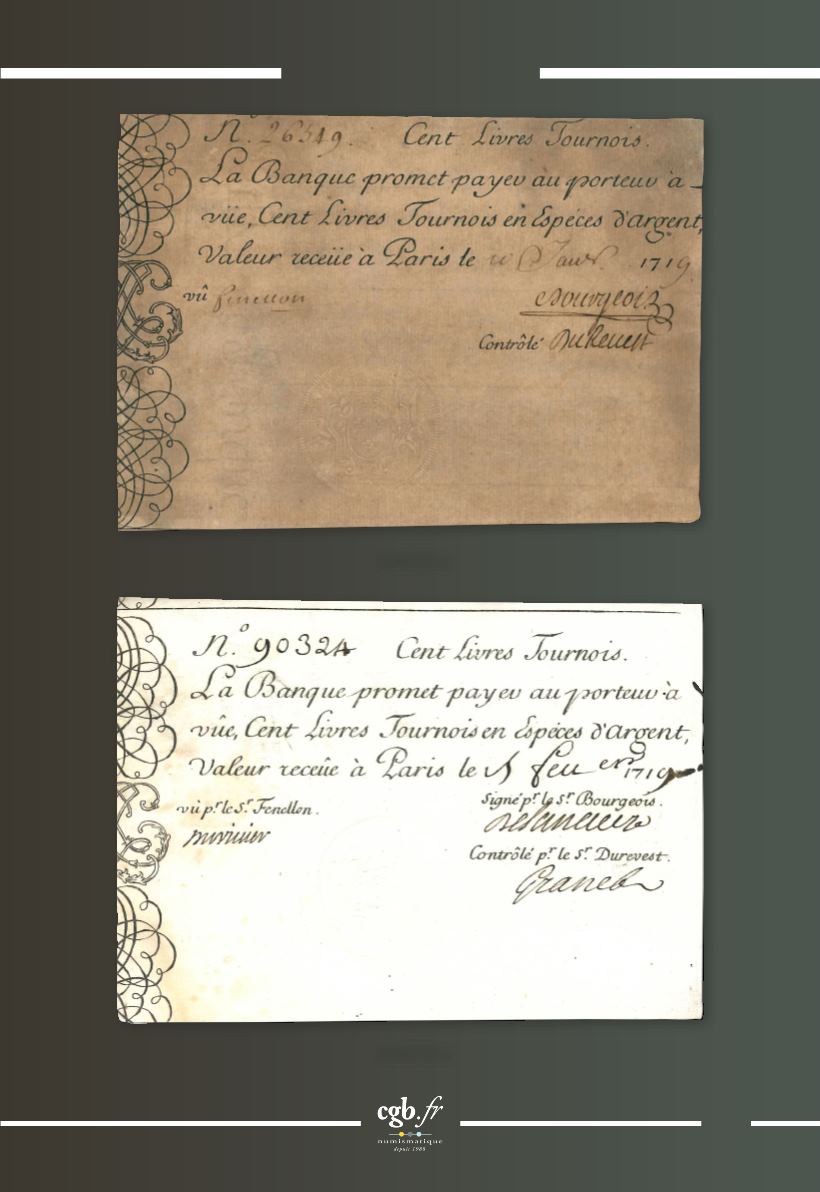 N.o 26349. Cent Livres Tournois.
La Banque promet payer au porteur à
vüe, Cent Livres Tournois en Espéces d'argent,
Valeur receüe à Paris le Janv. 1719.
vû fenellon
Bourgeois
Contrôlé Durevest
N.o 90324 Cent Livres Tournois.
La Banque promet payer au porteur à
vûe, Cent Livres Tournois en Espéces d'Argent,
Valeur receûe à Paris le 1719
vû p.r le S.r Fenellon.
Signé p.r le S.r Bourgeois.
Contrôlé p.r le S.r Durevest.
Granet
cgb.fr
numismatique
depuis 1988